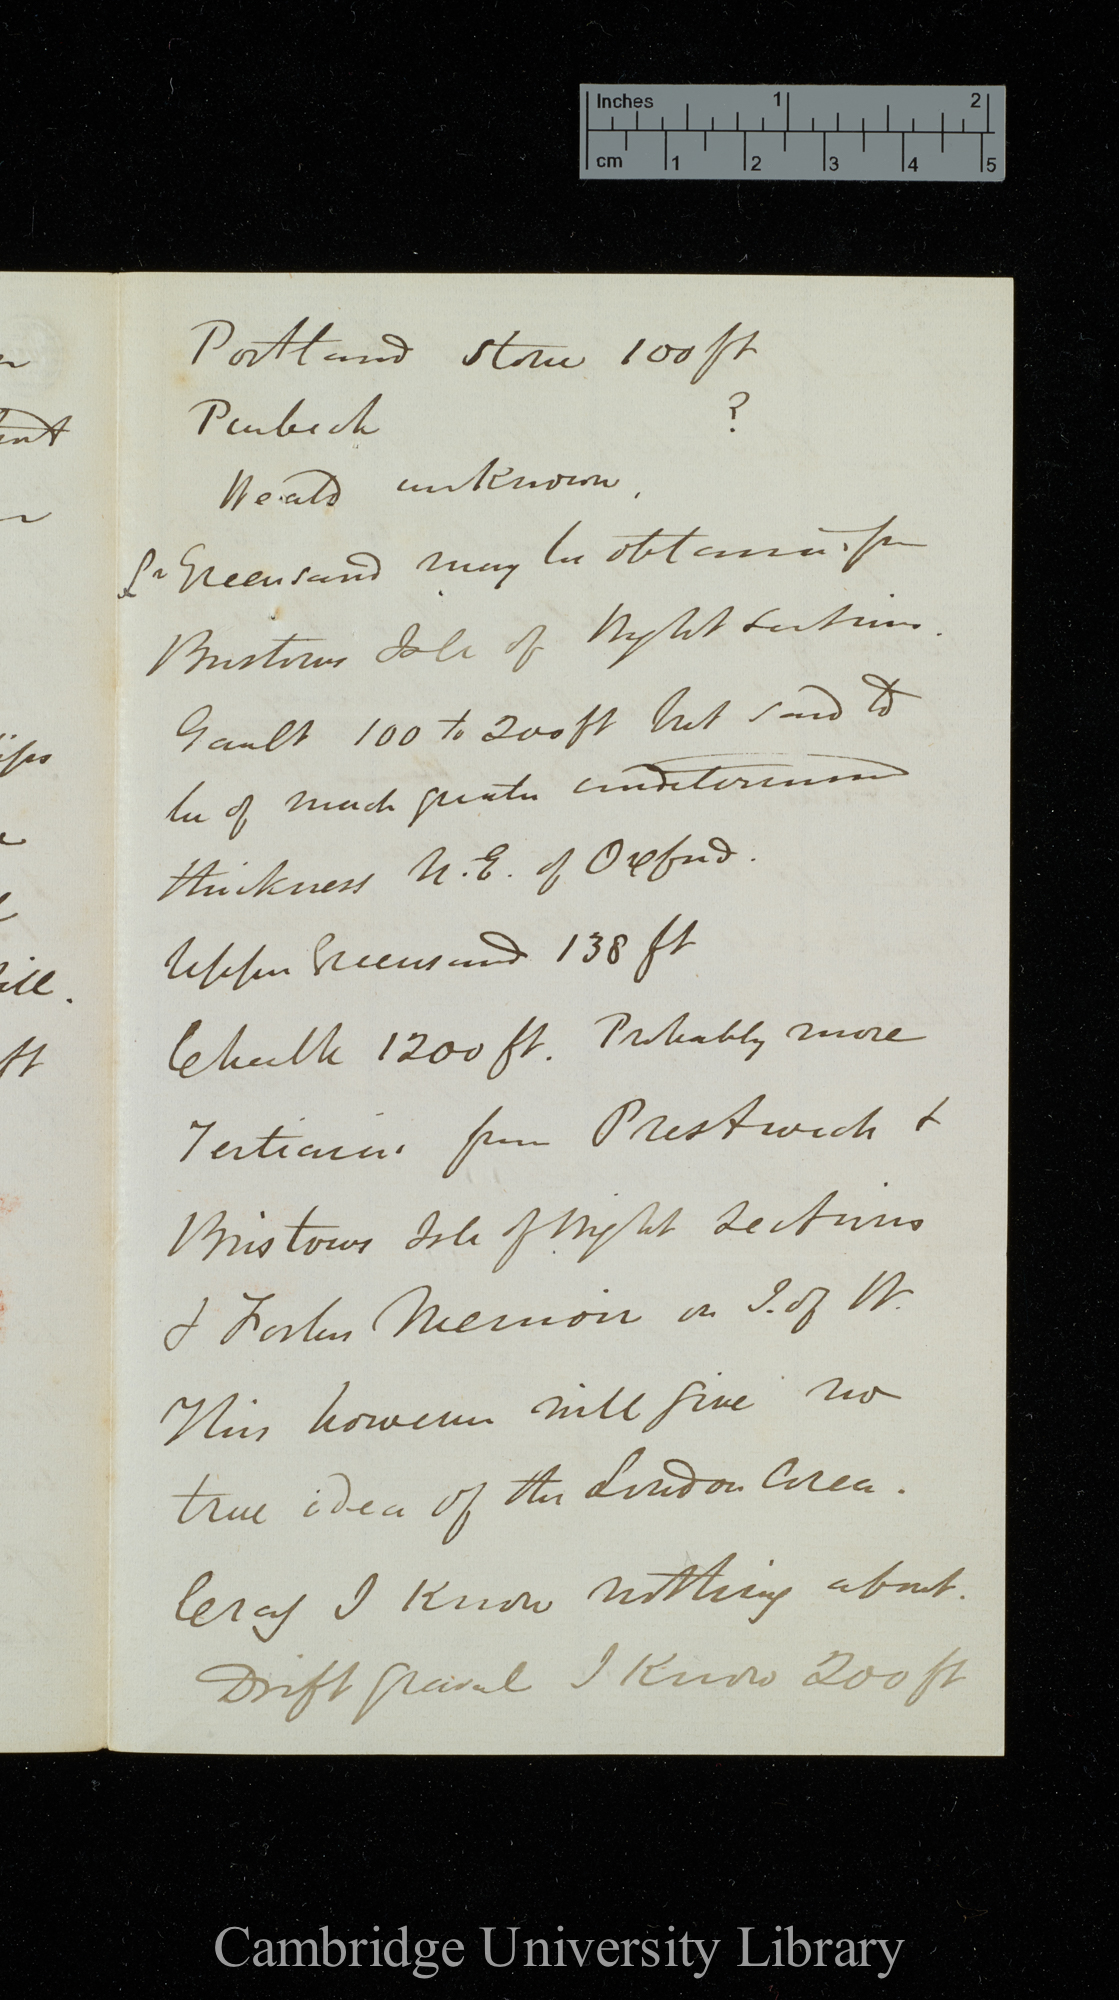 Inches 1 2
cm 1 2 3 4 5
Portland stone 100 ft
Purbeck ?
Weald unknown.
Lr Greensand may be obtained from
Bristows Isle of Wight sections.
Gault 100 to 200 ft but said to
be of much greater undetermined
thickness N.E. of Oxford.
Upper Greensand 138 ft
Chalk 1200 ft. Probably more
Tertiaries from Prestwich &
Bristows Isle of Wight Sections
& Forbes Memoir on I. of W.
This however will give no
true idea of the London Area.
Crag I know nothing about.
Drift gravel I know 200 ft
Cambridge University Library